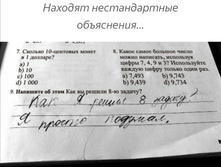 Находят нестандартные
объяснения...
7. Сколько 10-центовых монет
в 1 долларе?
a) 1
b) 10
c) 100
d) 1000
8. Какое самое большое число
можно написать, используя
цифры 7, 4, 9 и 3? Используйте
каждую цифру только один раз.
a) 7,493
b) 9,439
c) 9,743
d) 9,734
9. Напишите об этом Как вы решили 8-ю задачу?
Как я решил 8 задачу?
Я просто подумал.